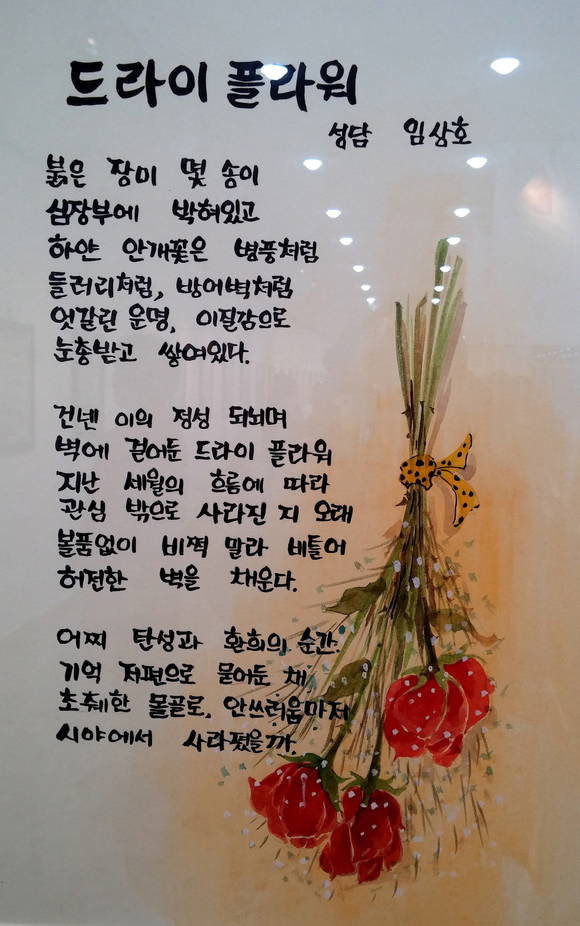 드라이 플라워
성담 임상호
붉은 장미 몇 송이
심장부에 박혀있고
하얀 안개꽃은 병풍처럼
들러리처럼, 방어벽처럼
엇갈린 운명, 이질감으로
눈총받고 쌓여있다.
건넨 이의 정성 되뇌며
벽에 걸어둔 드라이 플라워
지난 세월의 흐름에 따라
관심 밖으로 사라진 지 오래
볼품없이 비쩍 말라 비틀어
허전한 벽을 채운다.
어찌 탄성과 환희의 순간
기억 저편으로 묻어둔 채
초췌한 몰골로, 안쓰러움마저
시야에서 사라졌을까.